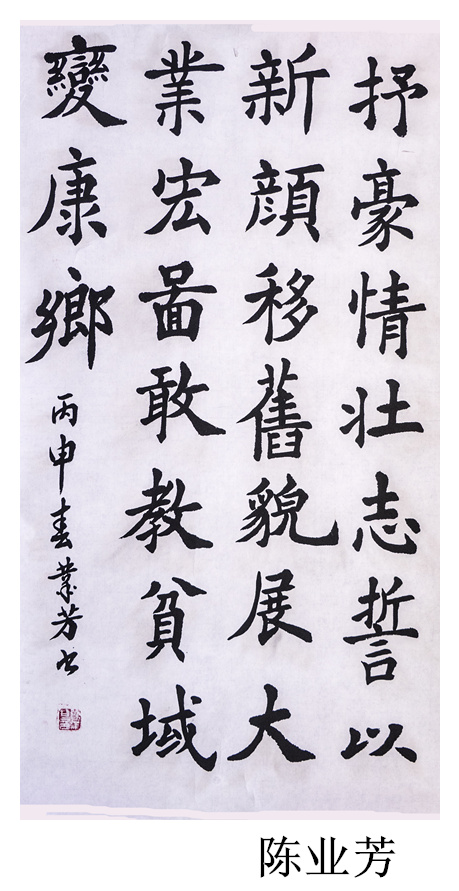 抒豪情壮志誓以
新顔移舊貌展大
業宏啚敢教貧域
變康鄉
丙申春業芳书
陈业芳